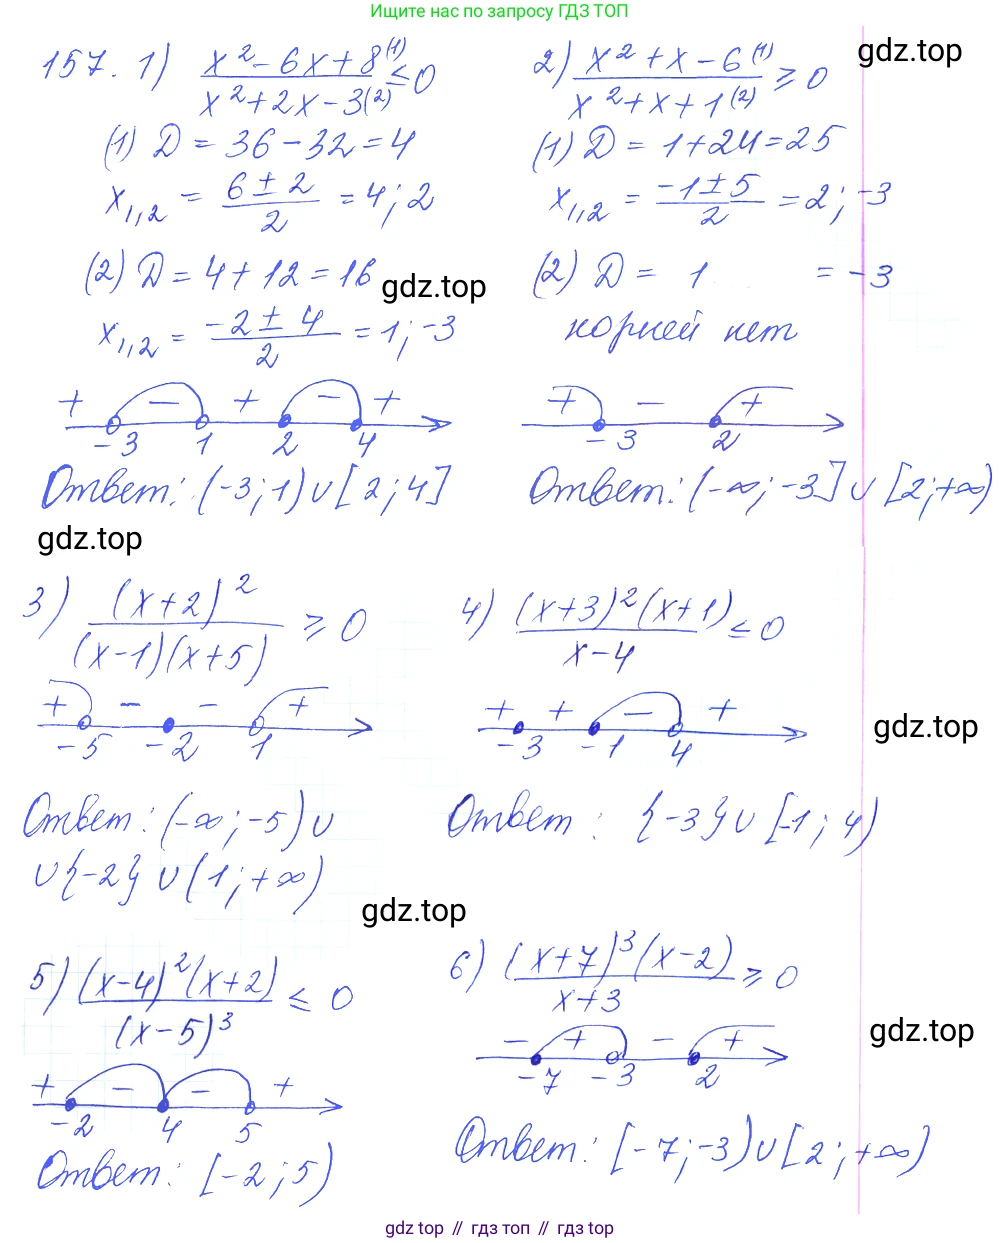 Ищите нас по запросу ГДЗ ТОП
gdz.top
157. 1) (x² - 6x + 8⁽¹⁾)/(x² + 2x - 3⁽²⁾) ≤ 0
(1) D = 36 - 32 = 4
x₁,₂ = (6 ± 2)/2 = 4; 2
(2) D = 4 + 12 = 16
gdz.top
x₁,₂ = (-2 ± 4)/2 = 1; -3
+ - + - +
-3 1 2 4
Ответ: (-3; 1) ∪ [2; 4]
2) (x² + x - 6⁽¹⁾)/(x² + x + 1⁽²⁾) ≥ 0
(1) D = 1 + 24 = 25
x₁,₂ = (-1 ± 5)/2 = 2; -3
(2) D = 1 = -3
корней нет
+ - +
-3 2
Ответ: (-∞; -3] ∪ [2; +∞)
gdz.top
3) (x+2)²/((x-1)(x+5)) ≥ 0
+ - - +
-5 -2 1
Ответ: (-∞; -5) ∪
∪{-2} ∪ (1; +∞)
4) ((x+3)²(x+1))/(x-4) ≤ 0
+ + - +
-3 -1 4
gdz.top
Ответ: {-3} ∪ [-1; 4)
gdz.top
5) ((x-4)²(x+2))/(x-5)³ ≤ 0
+ - - +
-2 4 5
Ответ: [-2; 5)
6) ((x+7)³(x-2))/(x+3) ≥ 0
gdz.top
- + - +
-7 -3 2
Ответ: [-7; -3) ∪ [2; +∞)
gdz top // гдз топ // гдз top